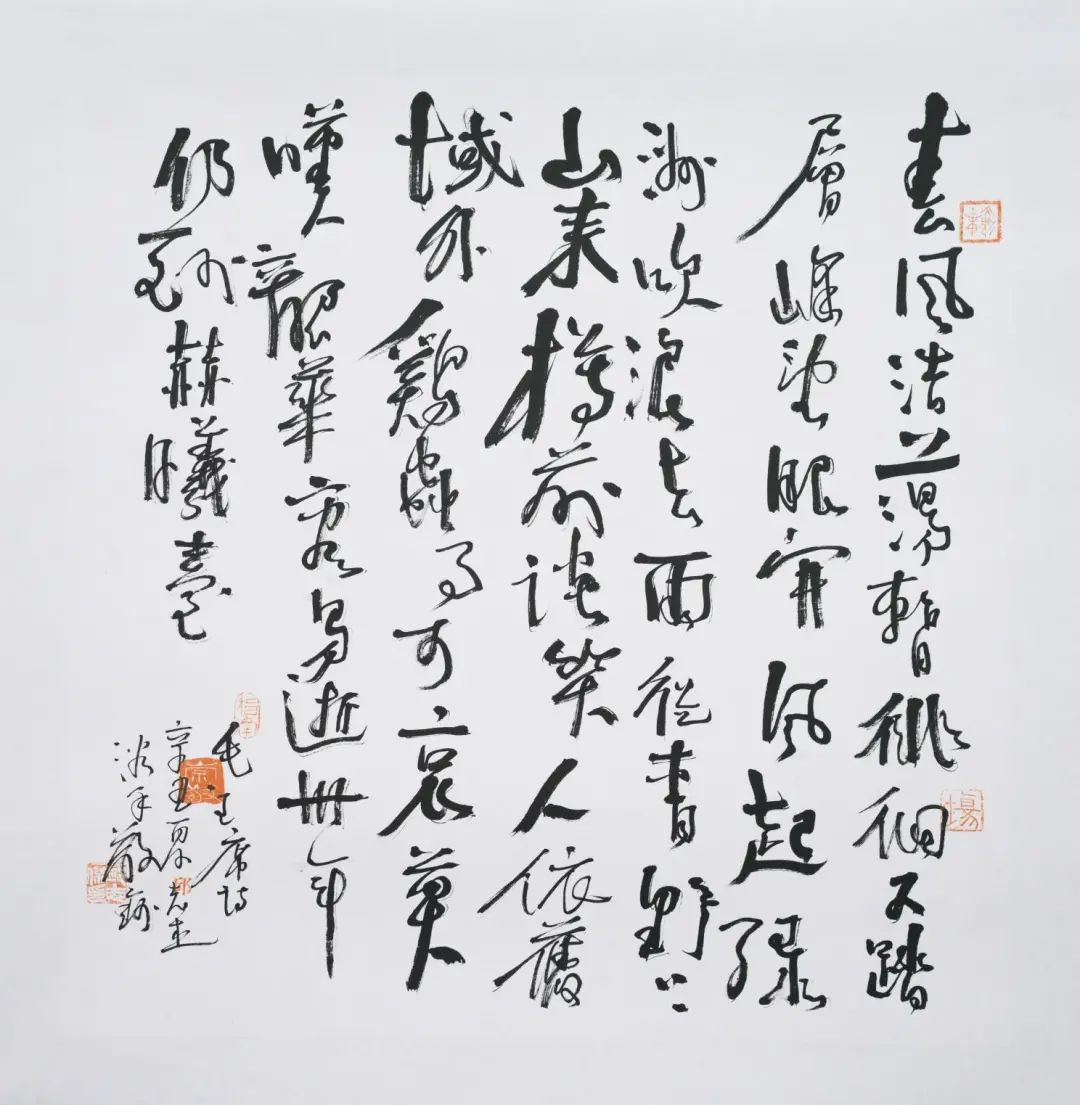 春風浩蕩暫徘徊又踏
層峰望眼開風起緑
洲吹浪去雨從青野上
山来樽前談笑人依舊
域外鷄蟲事可哀莫
嘆韶華容易逝卅年
仍到赫曦臺
毛主席詩
辛丑夏